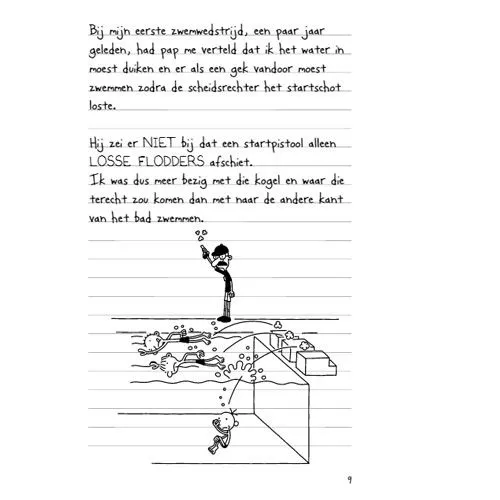 Bij mijn eerste zwemwedstrijd, een paar jaar
geleden, had pap me verteld dat ik het water in
moest duiken en er als een gek vandoor moest
zwemmen zodra de scheidsrechter het startschot
loste.
Hij zei er NIET bij dat een startpistool alleen
LOSSE FLODDERS afschiet.
Ik was dus meer bezig met die kogel en waar die
terecht zou komen dan met naar de andere kant
van het bad zwemmen.
9